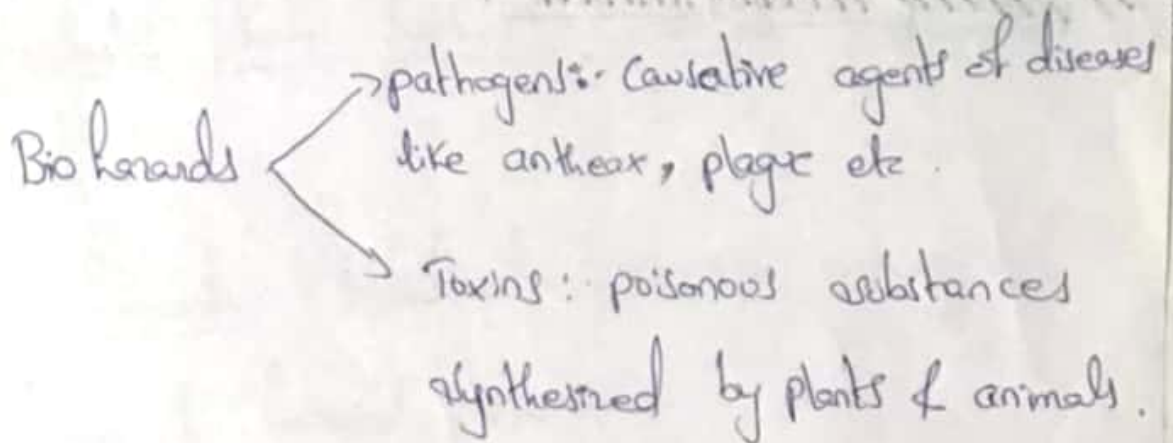 pathogens:- Causative agents of diseases
Bio hazards like anthrax, plague etc.
Toxins: poisonous substances
synthesized by plants & animals.